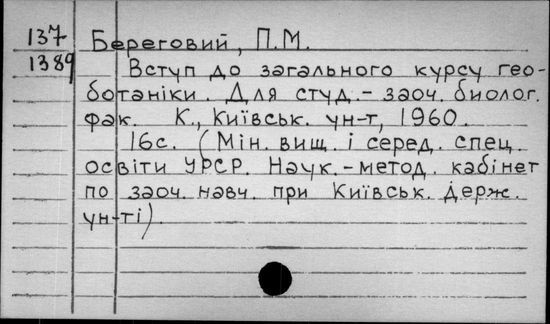 137 Береговий, П.М.
1389 Вступ до загального курсу гео-
ботаніки. Для студ.-заоч. биолог.
фак. К., Київськ. ун-т, 1960.
16с. (Мін. вищ. і серед. спец.
освіти УРСР. Наук.-метод. кабінет
по заоч. навч. при Київськ. держ.
ун-ті).